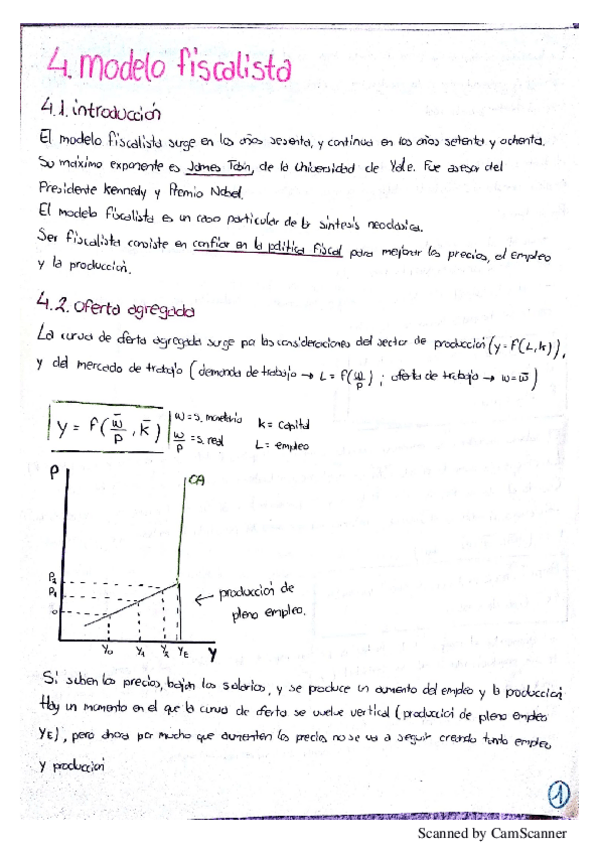 4. modelo fiscalista
4.1. introducción
El modelo fiscalista surge en los años sesenta, y continua en los años setenta y ochenta.
Su máximo exponente es James Tobin, de la Universidad de Yale. Fue asesor del
Presidente Kennedy y Premio Nobel.
El modelo fiscalista es un caso particular de la síntesis neoclásica.
Ser fiscalista consiste en confiar en la política fiscal para mejorar los precios, el empleo
y la producción.
4.2. Oferta agregada
La curva de oferta agregada surge por las consideraciones del sector de producción (y = F(L, k)),
y del mercado de trabajo (demanda de trabajo → L = F(w/p) ; oferta de trabajo → w = w̄)
y = F(w̄/p, k̄)
w = s. monetario k = Capital
w/p = s. real L = empleo
P
OA
P₂
P₁
0
← producción de
pleno empleo.
Y₀ Y₁ Y₂ YE Y
Si suben los precios, bajan los salarios, y se produce un aumento del empleo y la producción
Hay un momento en el que la curva de oferta se vuelve vertical (producción de pleno empleo
YE), pero ahora por mucho que aumenten los precios no se va a seguir creando tanto empleo
y producción
1
Scanned by CamScanner